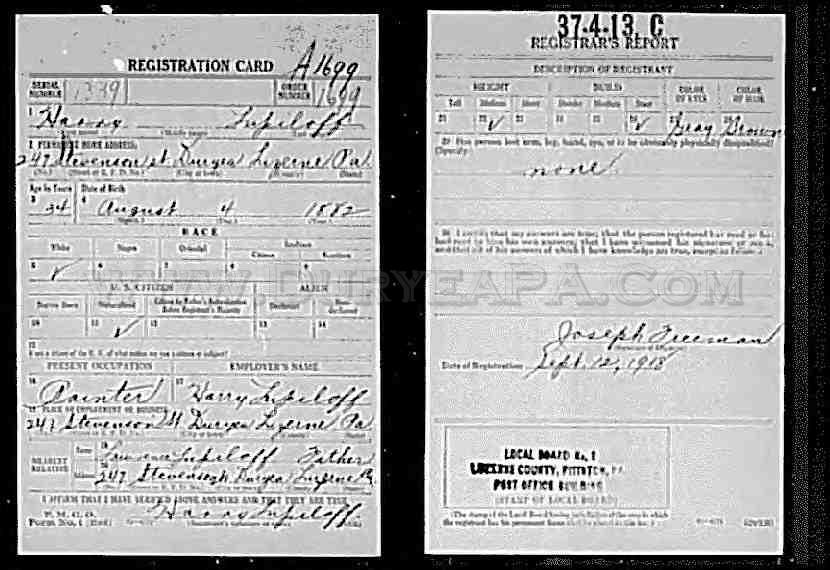 REGISTRATION CARD A1699
SERIAL NUMBER 1339 ORDER NUMBER 1699
1 Harry Lupiloff
2 PERMANENT HOME ADDRESS:
247 Stevenson st Duryea Luzerne Pa
(No.) (Street or R. F. D. No.) (City or town) (County) (State)
Age in Years Date of Birth
3 4 August 4 1882
RACE
White Negro Oriental Indian
Citizen
5 ✓ 6 7 8 9
U. S. CITIZEN ALIEN
Native Born Naturalized Citizen by Father's Naturalization Before Registrant's Majority Declarant Non-declarant
10 11 ✓ 12 13 14
15
PRESENT OCCUPATION EMPLOYER'S NAME
16 Painter 17 Harry Lupiloff
18 PLACE OF EMPLOYMENT OR BUSINESS:
247 Stevenson st Duryea Luzerne Pa
NEAREST RELATIVE Name 19 Lawrence Lupiloff Father
Address 20 247 Stevenson st Duryea Luzerne Pa
I AFFIRM THAT I HAVE VERIFIED ABOVE ANSWERS AND THAT THEY ARE TRUE
P. M. G. O.
Form No. 1 Lupiloff
37-4-13. C
REGISTRAR'S REPORT
DESCRIPTION OF REGISTRANT
HEIGHT BUILD COLOR OF EYES COLOR OF HAIR
Tall Medium Short Slender Medium Stout
21 22 ✓ 23 24 25 26 ✓ 27 Gray 28 Brown
29 Has person lost arm, leg, hand, eye, or is he obviously physically disqualified?
(Specify.)
none
30 I certify that my answers are true; that the person registered has read or has
had read to him his own answers; that I have witnessed his signature or mark,
and that all of his answers of which I have knowledge are true, except as follows:
WWW.DURYEAPA.COM
Joseph Freeman
Date of Registration Sept. 12, 1918
LOCAL BOARD No. 1
LUZERNE COUNTY, PITTSTON, PA.
POST OFFICE BUILDING
(STAMP OF LOCAL BOARD)
(The stamp of the Local Board having jurisdiction of the area in which
the registrant has his permanent home shall be placed in this box.)